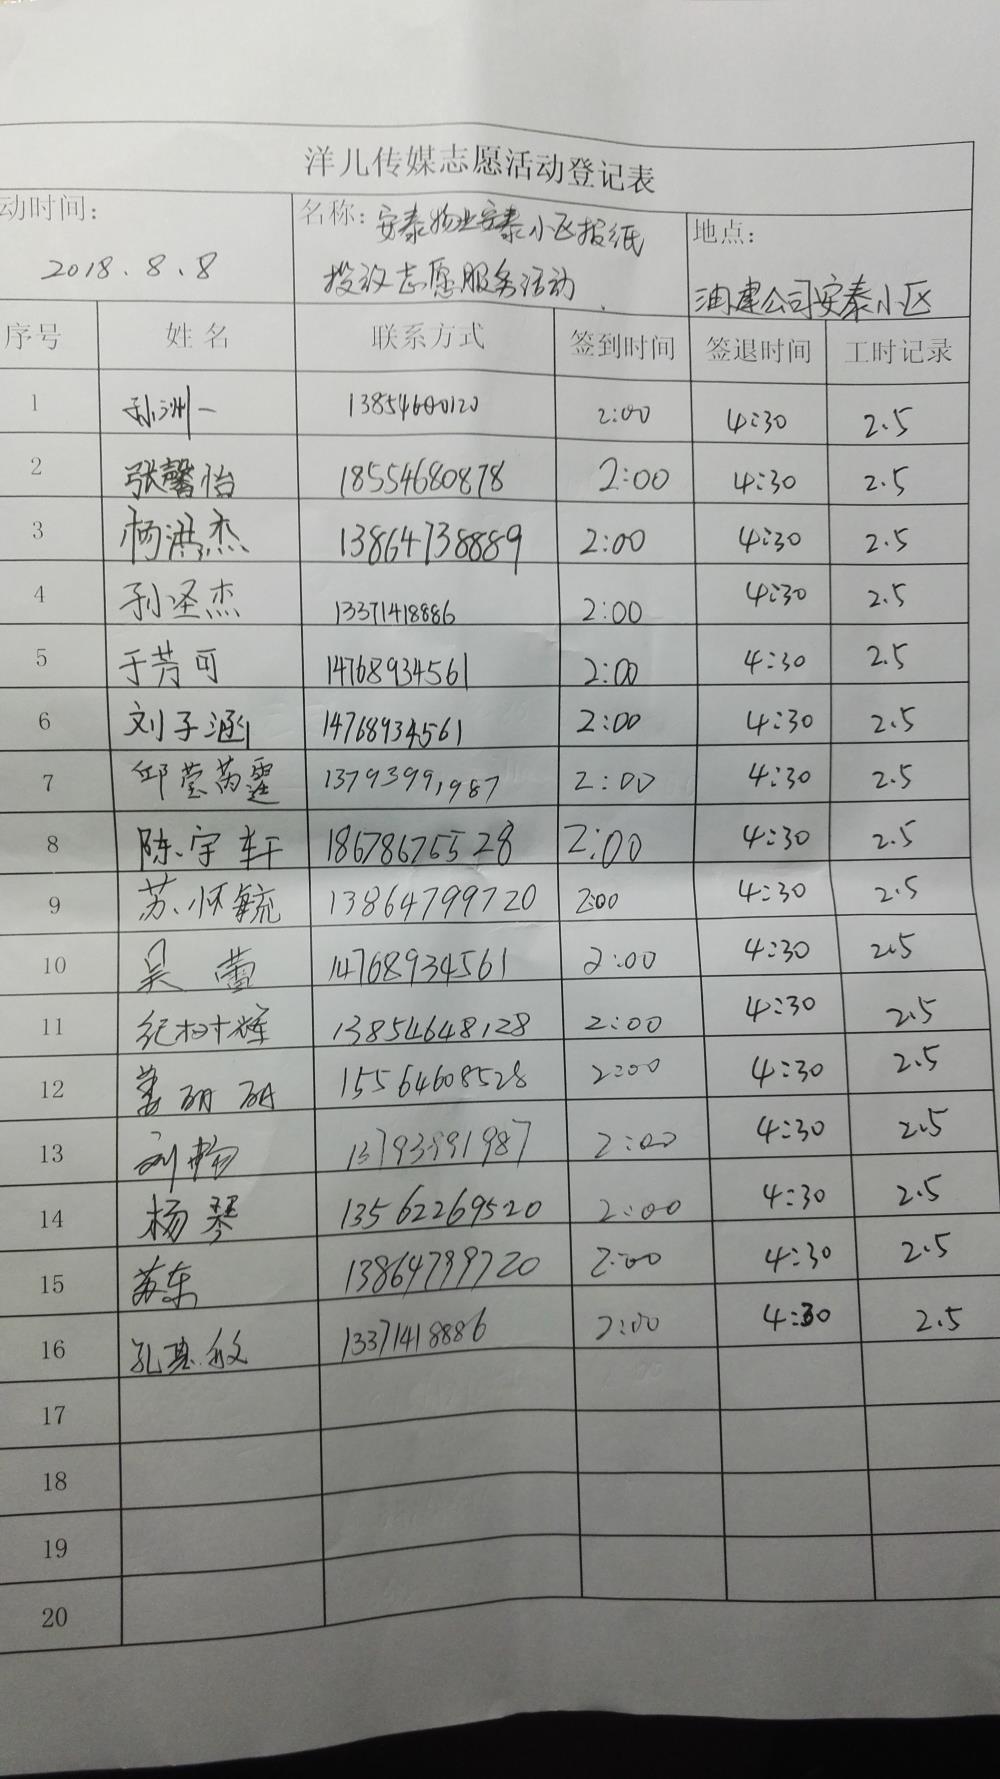 洋儿传媒志愿活动登记表
动时间: 名称: 安泰物业安泰小区报纸 地点:
2018.8.8 投放志愿服务活动 油建公司安泰小区
序号 姓名 联系方式 签到时间 签退时间 工时记录
1 孙洲一 13854600120 2:00 4:30 2.5
2 张馨怡 18554680878 2:00 4:30 2.5
3 杨鸿杰 13864738889 2:00 4:30 2.5
4 孙圣杰 13371418886 2:00 4:30 2.5
5 于芳可 14768934561 2:00 4:30 2.5
6 刘子涵 14768934561 2:00 4:30 2.5
7 邱莹芮霆 13793991987 2:00 4:30 2.5
8 陈宇轩 18678675528 2:00 4:30 2.5
9 苏怀毓 13864799720 2:00 4:30 2.5
10 吴蕾 14768934561 2:00 4:30 2.5
11 纪树辉 13854648128 2:00 4:30 2.5
12 姜丽丽 15564608528 2:00 4:30 2.5
13 刘畅 13793991987 2:00 4:30 2.5
14 杨琴 13562269520 2:00 4:30 2.5
15 苏东 13864799720 2:00 4:30 2.5
16 孔其敏 13371418886 2:00 4:30 2.5
17
18
19
20